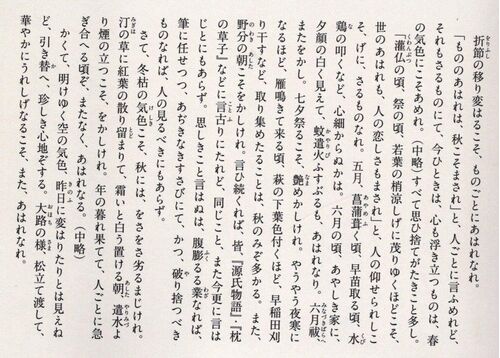 折節の移り変はるこそ、ものごとにあはれなれ。
「もののあはれは、秋こそまされ」と、人ごとに言ふめれど、
それもさるものにて、今ひときは、心も浮き立つものは、春
の気色にこそあめれ。（中略）すべて思ひ捨てがたきこと多し。
「灌仏の頃、祭の頃、若葉の梢涼しげに茂りゆくほどこそ、
世のあはれも、人の恋しさもまされ」と、人の仰せられしこ
そ、げに、さるものなれ。五月、菖蒲葺く頃、早苗取る頃、水
鶏の叩くなど、心細からぬかは。六月の頃、あやしき家に、
夕顔の白く見えて、蚊遣火ふすぶるも、あはれなり。六月祓、
またをかし。七夕祭るこそ、艶めかしけれ。やうやう夜寒に
なるほど、雁鳴きて来る頃、萩の下葉色付くほど、早稲田刈
り干すなど、取り集めたることは、秋のみぞ多かる。また、
野分の朝こそをかしけれ。言ひ続くれば、皆、『源氏物語』・『枕
の草子』などに言古りにたれど、同じこと、また今更に言は
じとにもあらず。思しきこと言はぬは、腹膨るる業なれば、
筆に任せつつ、あぢきなきすさびにて、かつ、破り捨つべき
ものなれば、人の見るべきにもあらず。
さて、冬枯の気色こそ、秋には、をさをさ劣るまじけれ。
汀の草に紅葉の散り留まりて、霜いと白う置ける朝、遣水よ
り煙の立つこそ、をかしけれ。年の暮れ果てて、人ごとに急
ぎ合へる頃ぞ、またなく、あはれなる。（中略）
かくて、明けゆく空の気色、昨日に変はりたりとは見えね
ど、引き替へ、珍しき心地ぞする。大路の様、松立て渡して、
華やかにうれしげなるこそ、また、あはれなれ。